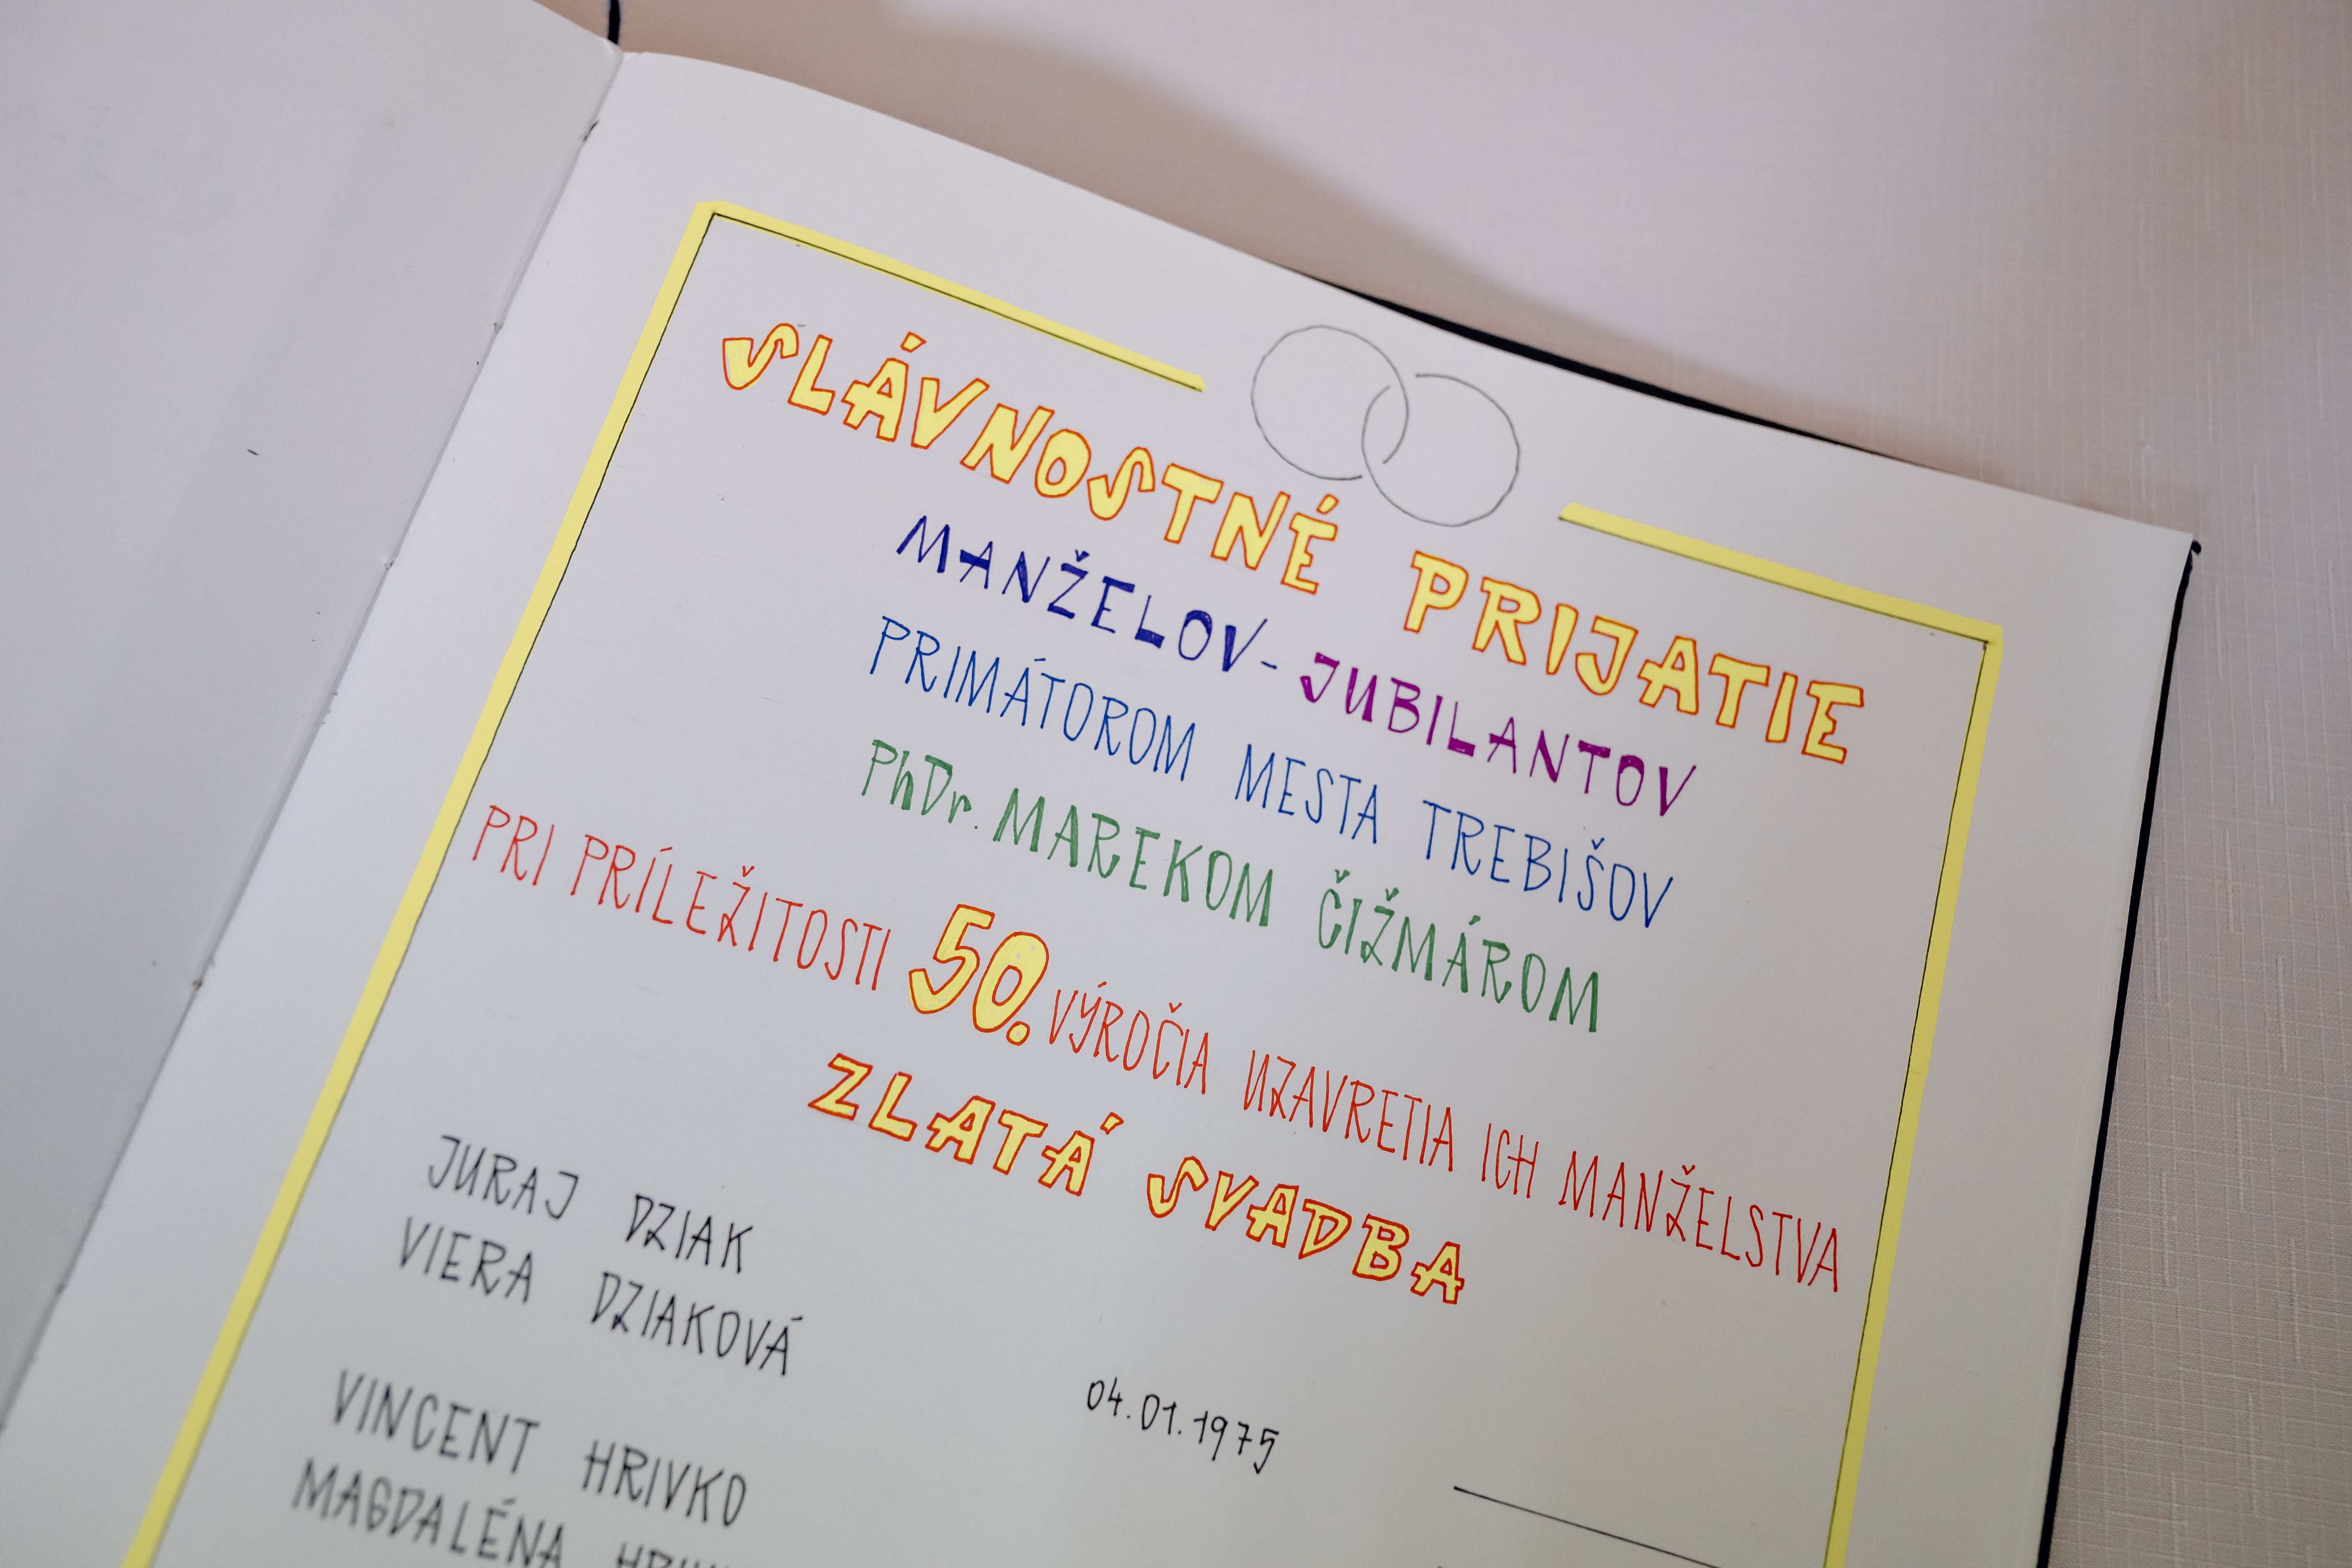 SLÁVNOSTNÉ PRIJATIE
MANŽELOV-JUBILANTOV
PRIMÁTOROM MESTA TREBIŠOV
PhDr. MAREKOM ČIŽMÁROM
PRI PRÍLEŽITOSTI 50. VÝROČIA UZAVRETIA ICH MANŽELSTVA
ZLATÁ SVADBA
JURAJ DZIAK
VIERA DZIAKOVÁ
04.01.1975
VINCENT HRIVKO
MAGDALÉNA